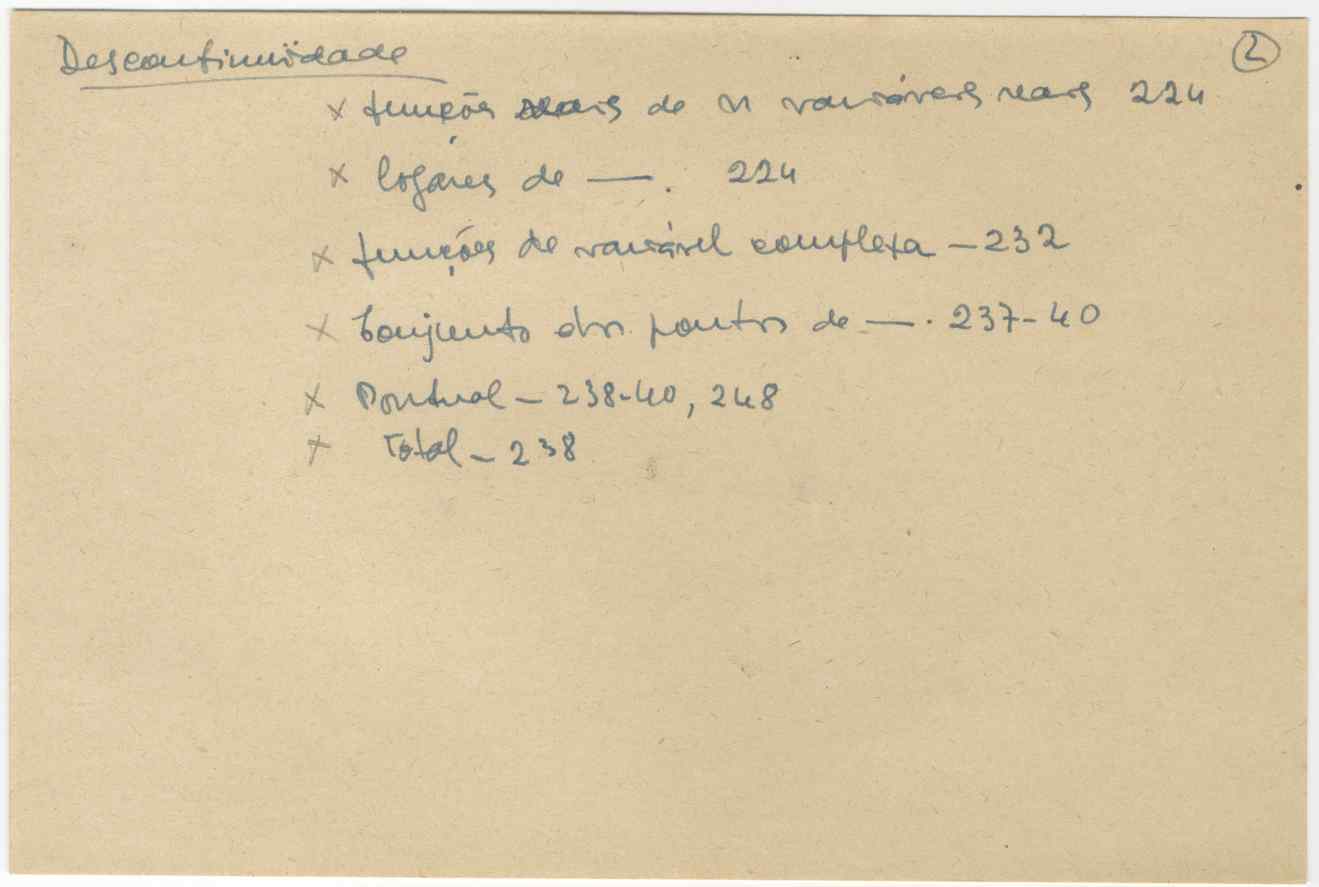 Descontinuïdade ②
× funções reais de n variáveis reais 224
× logáres de —. 224
× funções de variável complexa — 232
× Conjunto dos pontos de —. 237-40
× Pontual — 238-40, 248
× Total — 238